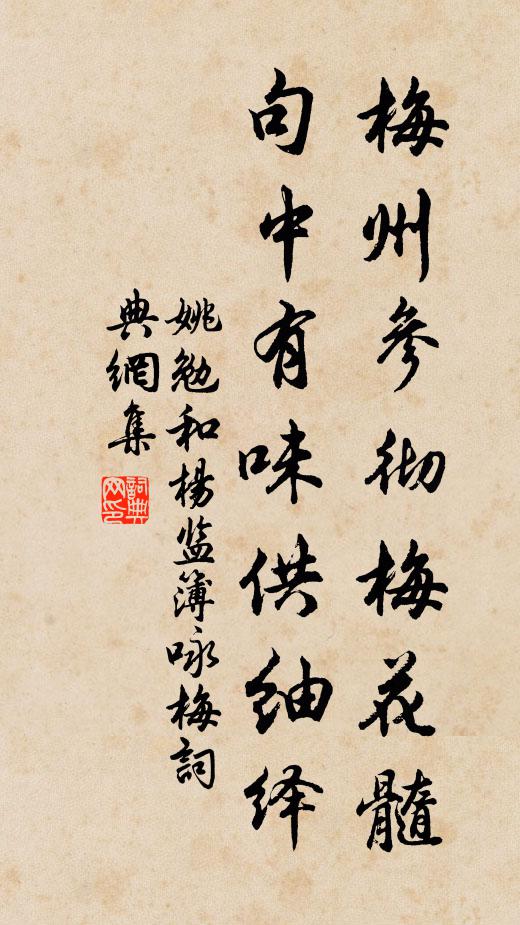 梅州参彻梅花髓
句中有味供紬绎
姚勉和楊监簿咏梅詞
典網集
詞典
网印